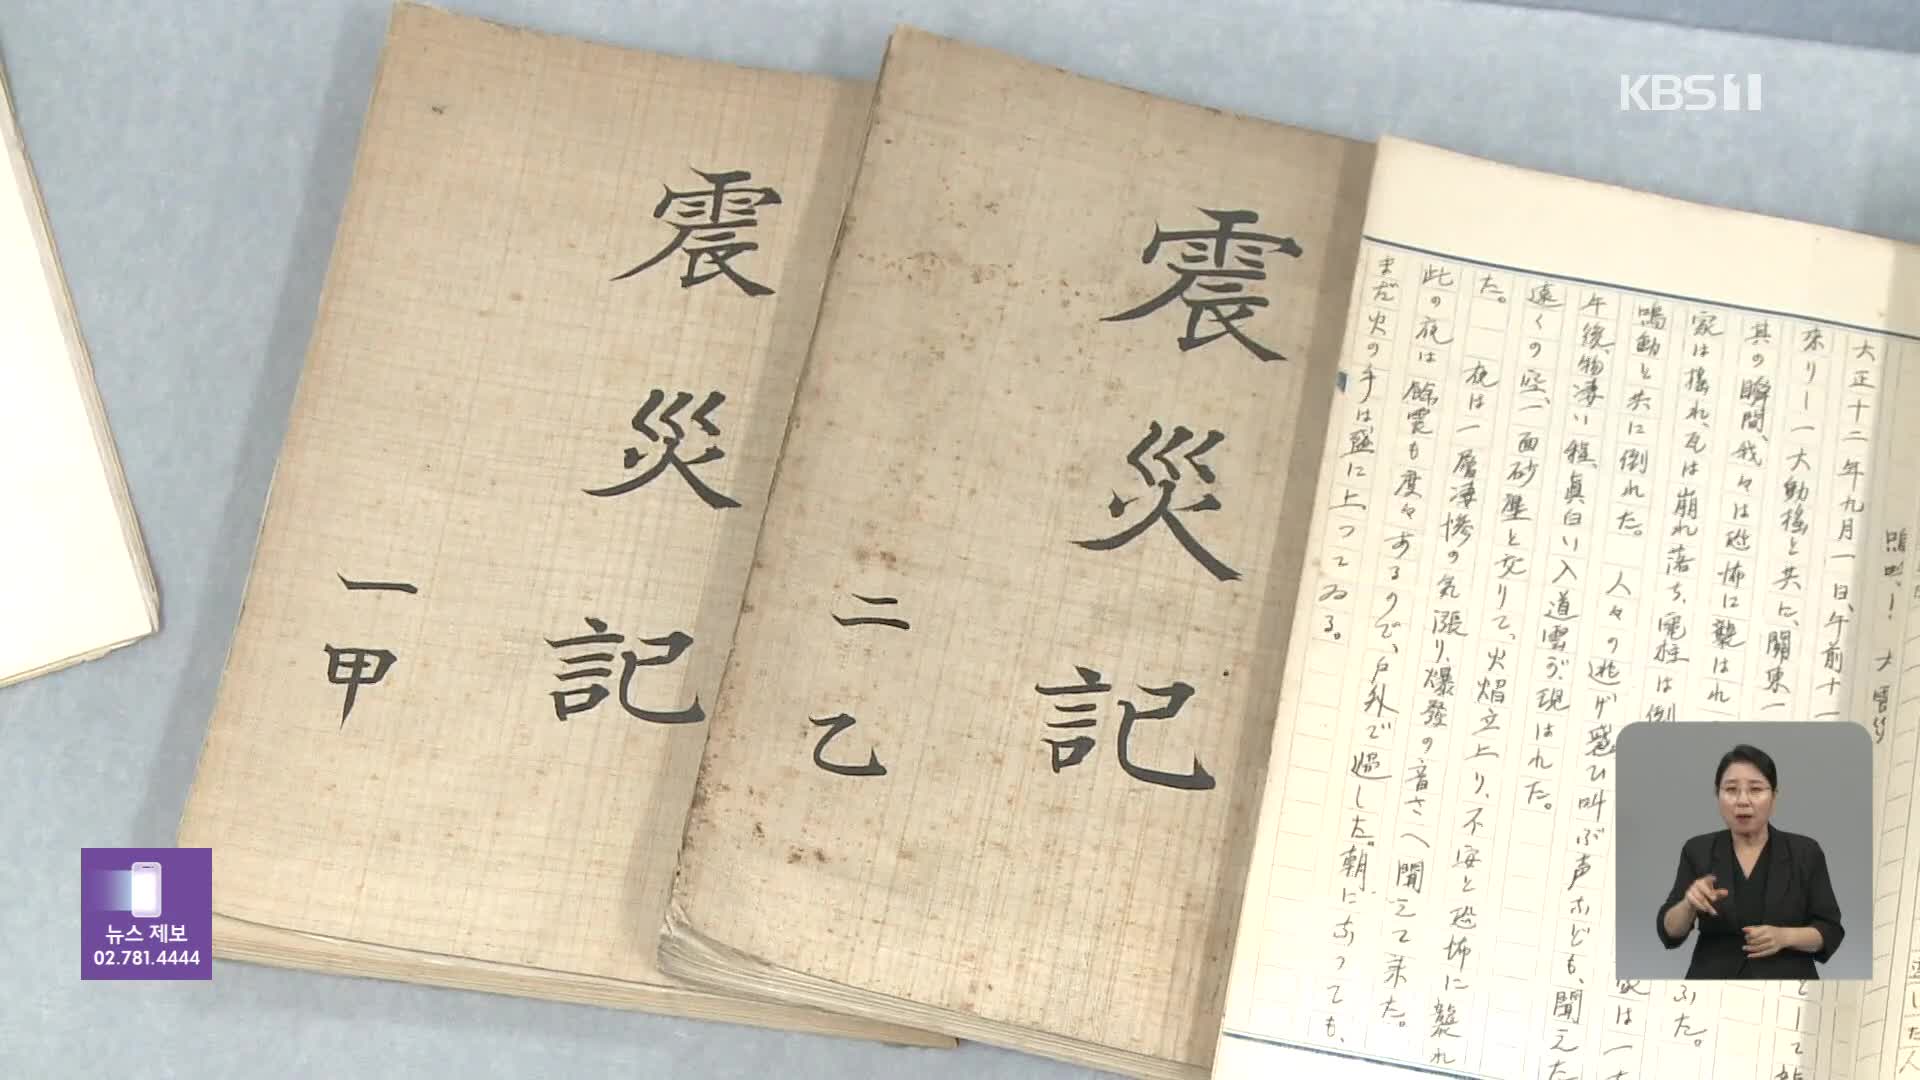 KBS 1
震災記
一甲
震災記
二乙
大正十二年九月一日、午前十一
来り!一大動揺と共に、關東一
其の瞬間、我々は恐怖に襲はれ
家は揺れ、瓦は崩れ落ち、電柱は倒
鳴動と共に倒れた。 人々の逃げ惑ひ叫ぶ声
午後、物凄い
眞白い入道雲が、現はれた。
遠くの空、一面砂塵と交りて、火焰立上り、不安と恐怖に襲れ
た。 夜は一層凄惨の気漲り、爆發の音さへ聞えて来た。
此の夜は餘震も度々あるので、戸外で過した。朝になっても、
まだ火の手は盛に上ってゐる。
뉴스 제보
02.781.4444